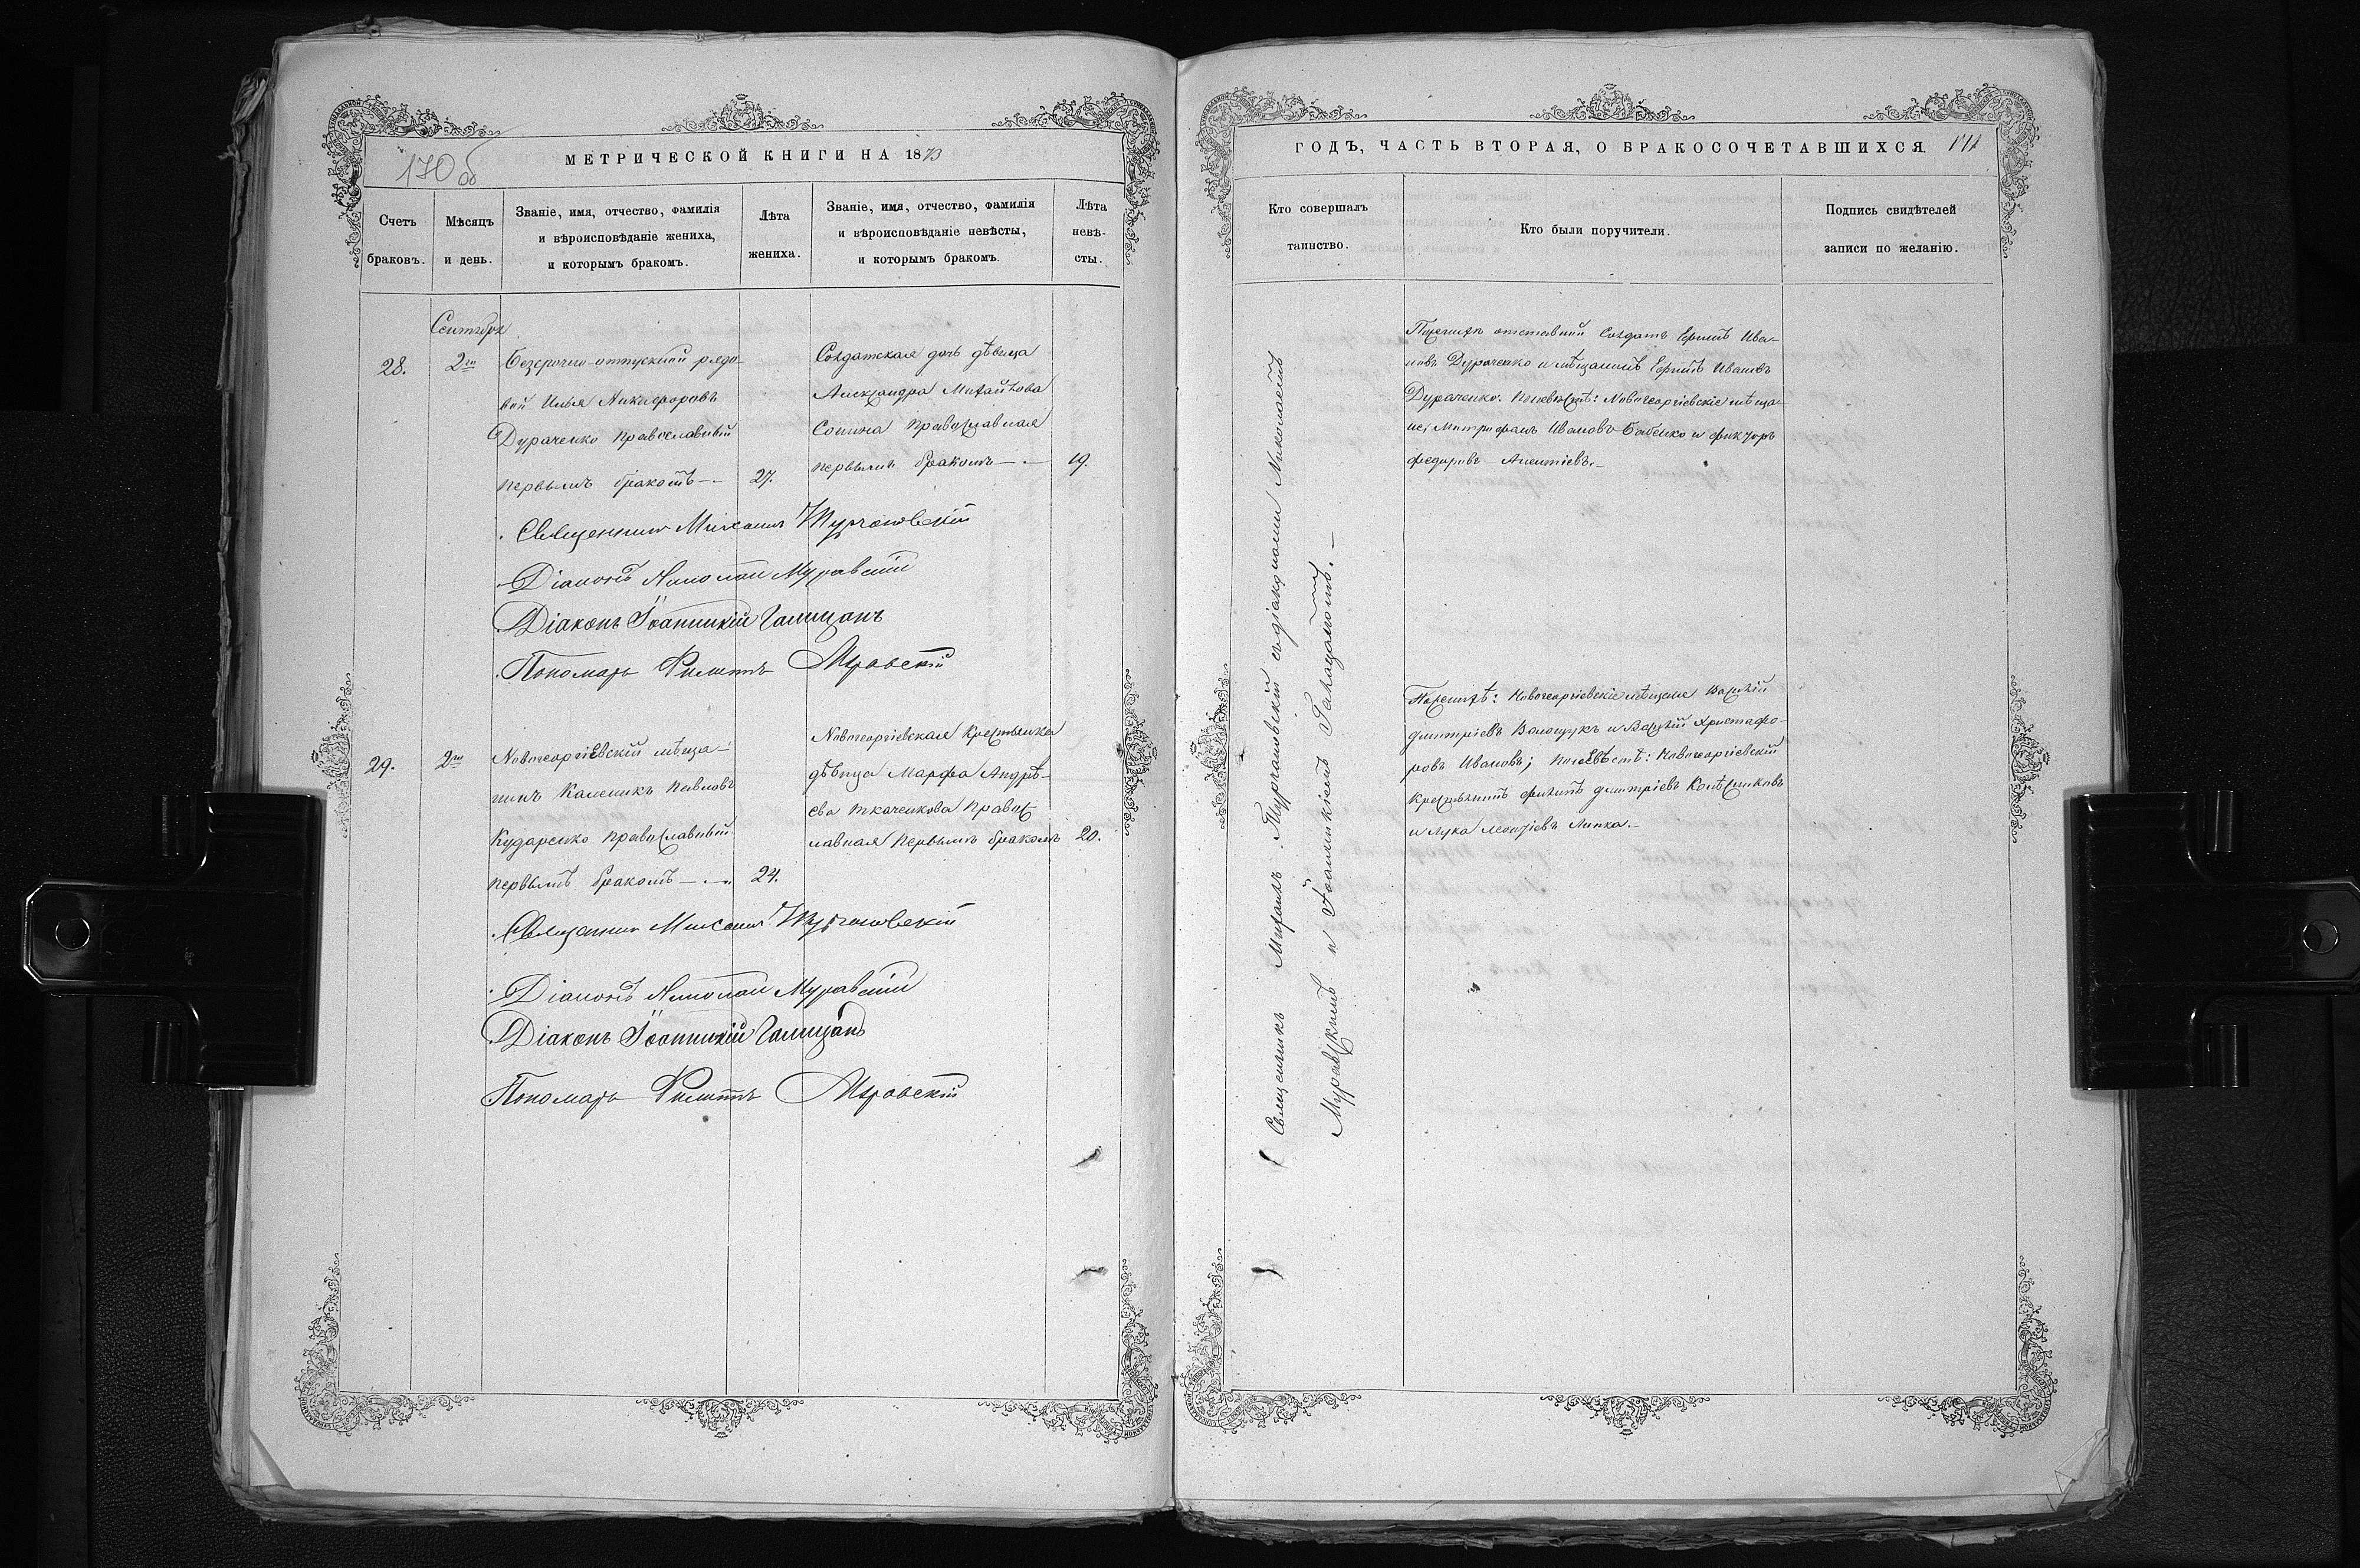 170 об
МЕТРИЧЕСКОЙ КНИГИ НА 1873
Счетъ браковъ.
Мѣсяцъ и день.
Званіе, имя, отчество, фамилія
и вѣроисповѣданіе жениха,
и которымъ бракомъ.
Лѣта жениха.
Званіе, имя, отчество, фамилія
и вѣроисповѣданіе невѣсты,
и которымъ бракомъ.
Лѣта невѣ-
сты.
Сентября
28.
2го
Безсрочно-отпускной рядо-
вой Илья Никифоровъ
Дураченко православный
первымъ бракомъ
27.
Солдатская дочь дѣвица
Александра Михайлова
Сонина православная
первымъ бракомъ
19.
Священникъ Михаилъ Турчановскій
Діаконъ Николай Муравскій
Діаконъ Іоанникій Галицанъ
Пономарь Филиппъ
29.
2го
Новогеоргіевскій мѣща-
нинъ Калиникъ Павловъ
Кударенко православный
первымъ бракомъ
24.
Новогеоргіевская крестьянка
дѣвица Марфа Андрѣ-
ева Ткаченкова правос-
лавная первымъ бракомъ
20.
Священникъ Михаилъ Турчановскій
Діаконъ Николай Муравскій
Діаконъ Іоанникій Галицанъ
Пономарь Филиппъ
ГОДЪ, ЧАСТЬ ВТОРАЯ, О БРАКОСОЧЕТАВШИХСЯ.
171
Кто совершалъ
таинство.
Кто были поручители.
Подпись свидѣтелей
записи по желанію.
Священникъ Михаилъ Турчановскій съ діаконами Николаемъ
Муравскимъ и Іоанникіемъ Галицаномъ.
По женихѣ отставной солдатъ Ефимъ Ива-
новъ Дураченко и мѣщанинъ Ефимъ Ивановъ
Дураченко. По невѣстѣ: Новогеоргіевскіе мѣща-
не; Митрофанъ Ивановъ Бабенко и
Федоровъ
По женихѣ: Новогеоргіевскіе мѣщане Василій
Димитріевъ Волощукъ и Василій Христофо-
ровъ Ивановъ; по невѣстѣ: Новогеоргіевскій
крестьянинъ Филипъ Димитріевъ Колѣсниковъ
и Лука Леонтіевъ Липка.